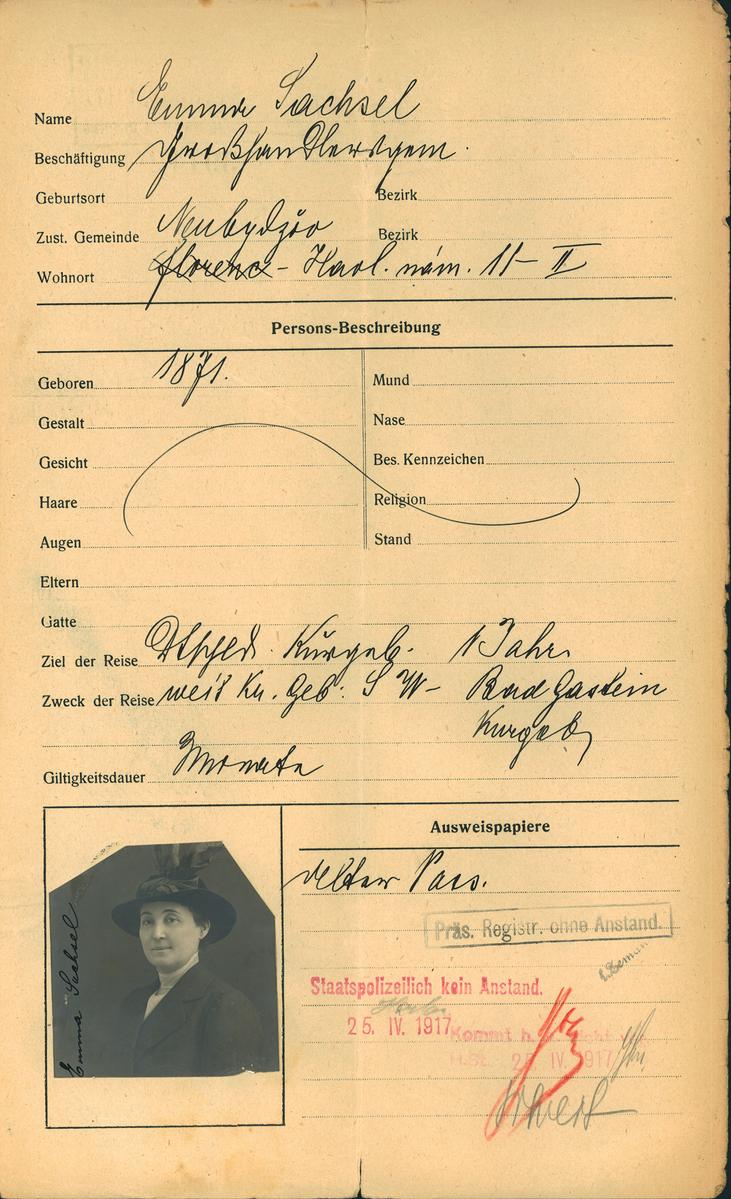 Name Emma Sachsel
Beschäftigung Großhandlersgem.
Geburtsort Bezirk
Zust. Gemeinde Neubydžov Bezirk
Wohnort Florenc - Karl. nám. 11 - II
Persons-Beschreibung
Geboren 1871. Mund
Gestalt Nase
Gesicht Bes. Kennzeichen
Haare Religion
Augen Stand
Eltern
Gatte
Ziel der Reise Dtschld. Kurgeb. 1 Jahr
Zweck der Reise Geb: S W- Bad Gastein
Kurgeb
Giltigkeitsdauer Monate
Ausweispapiere
alter Pass.
Präs. Registr. ohne Anstand.
Staatspolizeilich kein Anstand.
25. IV. 1917
Kommt h. a. nicht vor
25. IV. 1917
Emma Sachsel